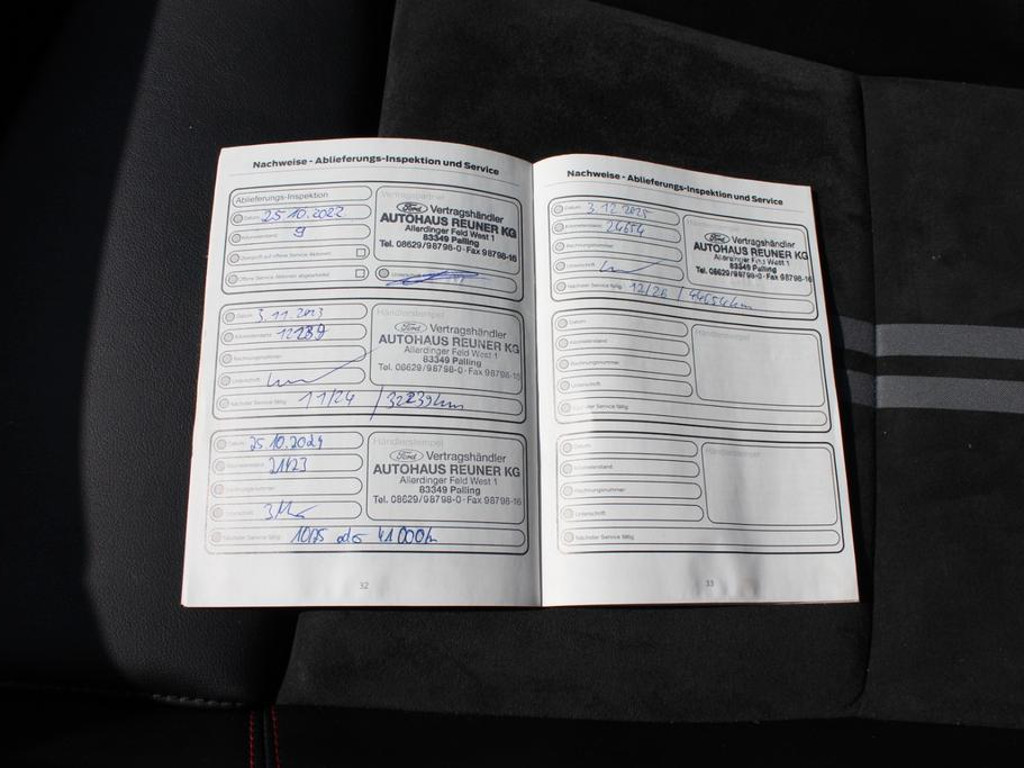 Nachweise - Ablieferungs-Inspektion und Service
Ablieferungs-Inspektion
Datum 25.10.2022
Kilometerstand 9
Überprüft auf offene Service Aktionen
Offene Service Aktionen abgearbeitet
Ford Vertragshändler
AUTOHAUS REUNER KG
Allerdinger Feld West 1
83349 Palling
Tel. 08629/98798-0 · Fax 98798-16
Datum 3.11.2023
Kilometerstand
Rechnungsnummer
Unterschrift
Nächster Service fällig 11/24 / 32239km
Händlerstempel
Ford Vertragshändler
AUTOHAUS REUNER KG
Allerdinger Feld West 1
83349 Palling
Tel. 08629/98798-0 · Fax 98798-16
Datum 25.10.2024
Kilometerstand 21423
Rechnungsnummer
Unterschrift
Nächster Service fällig 10/25 oder 41000km
Händlerstempel
Ford Vertragshändler
AUTOHAUS REUNER KG
Allerdinger Feld West 1
83349 Palling
Tel. 08629/98798-0 · Fax 98798-16
32
Nachweise - Ablieferungs-Inspektion und Service
Datum 3.12.2025
Kilometerstand 24654
Rechnungsnummer
Unterschrift
Nächster Service fällig 12/26 / 44654km
Ford Vertragshändler
AUTOHAUS REUNER KG
Allerdinger Feld West 1
83349 Palling
Tel. 08629/98798-0 · Fax 98798-16
Datum
Kilometerstand
Rechnungsnummer
Unterschrift
Nächster Service fällig
Händlerstempel
Datum
Kilometerstand
Rechnungsnummer
Unterschrift
Nächster Service fällig
Händlerstempel
33